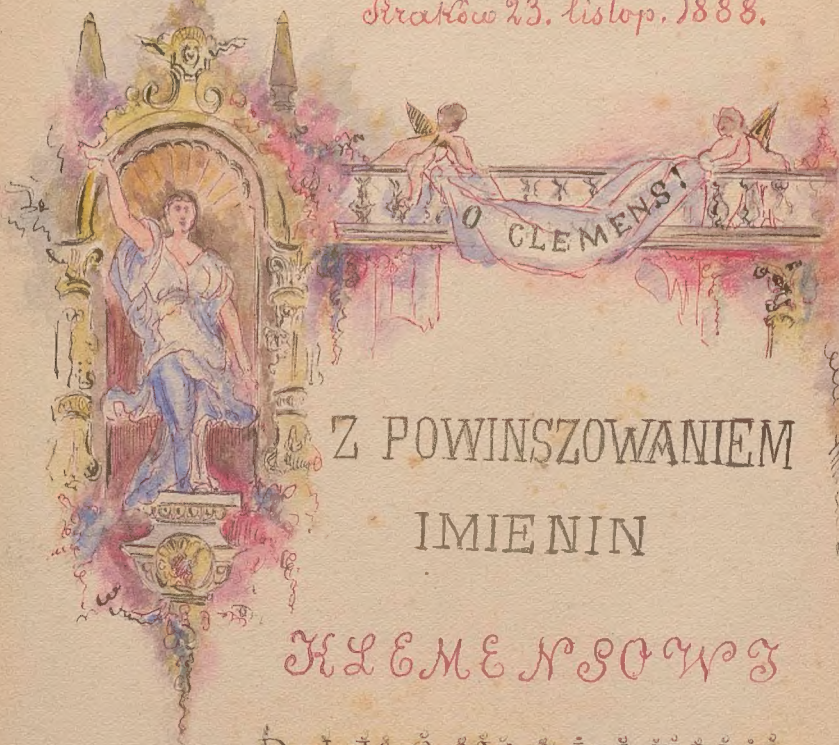 Kraków 23. listop. 1888.
O CLEMENS!
Z POWINSZOWANIEM
IMIENIN
KLEMENSOWI